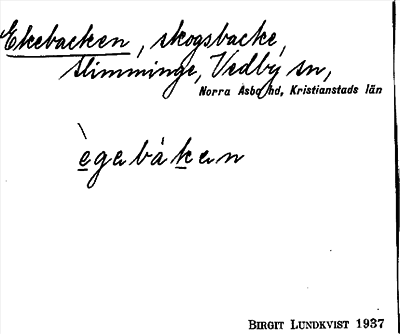 Ekebacken, skogsbacke,
Slimminge, Vedby sn,
Norra Åsbo hd, Kristianstads län
ègebåken
BIRGIT LUNDKVIST 1937